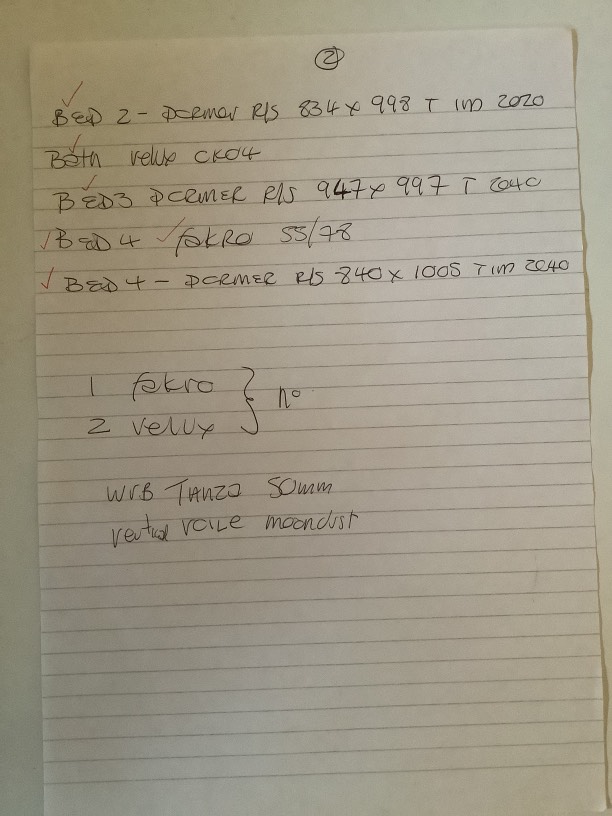 2
BED 2 - DORMER R/S 834 x 998 T IM 2020
Both velux CK04
BED3 DORMER R/S 947 x 997 T 2040
BED 4 fakro 55/78
BED 4 - DORMER R/S 840 x 1005 T IM 2040
1 fakro
2 velux } no
WVB TANZO 50mm
vertical VOILE moondust